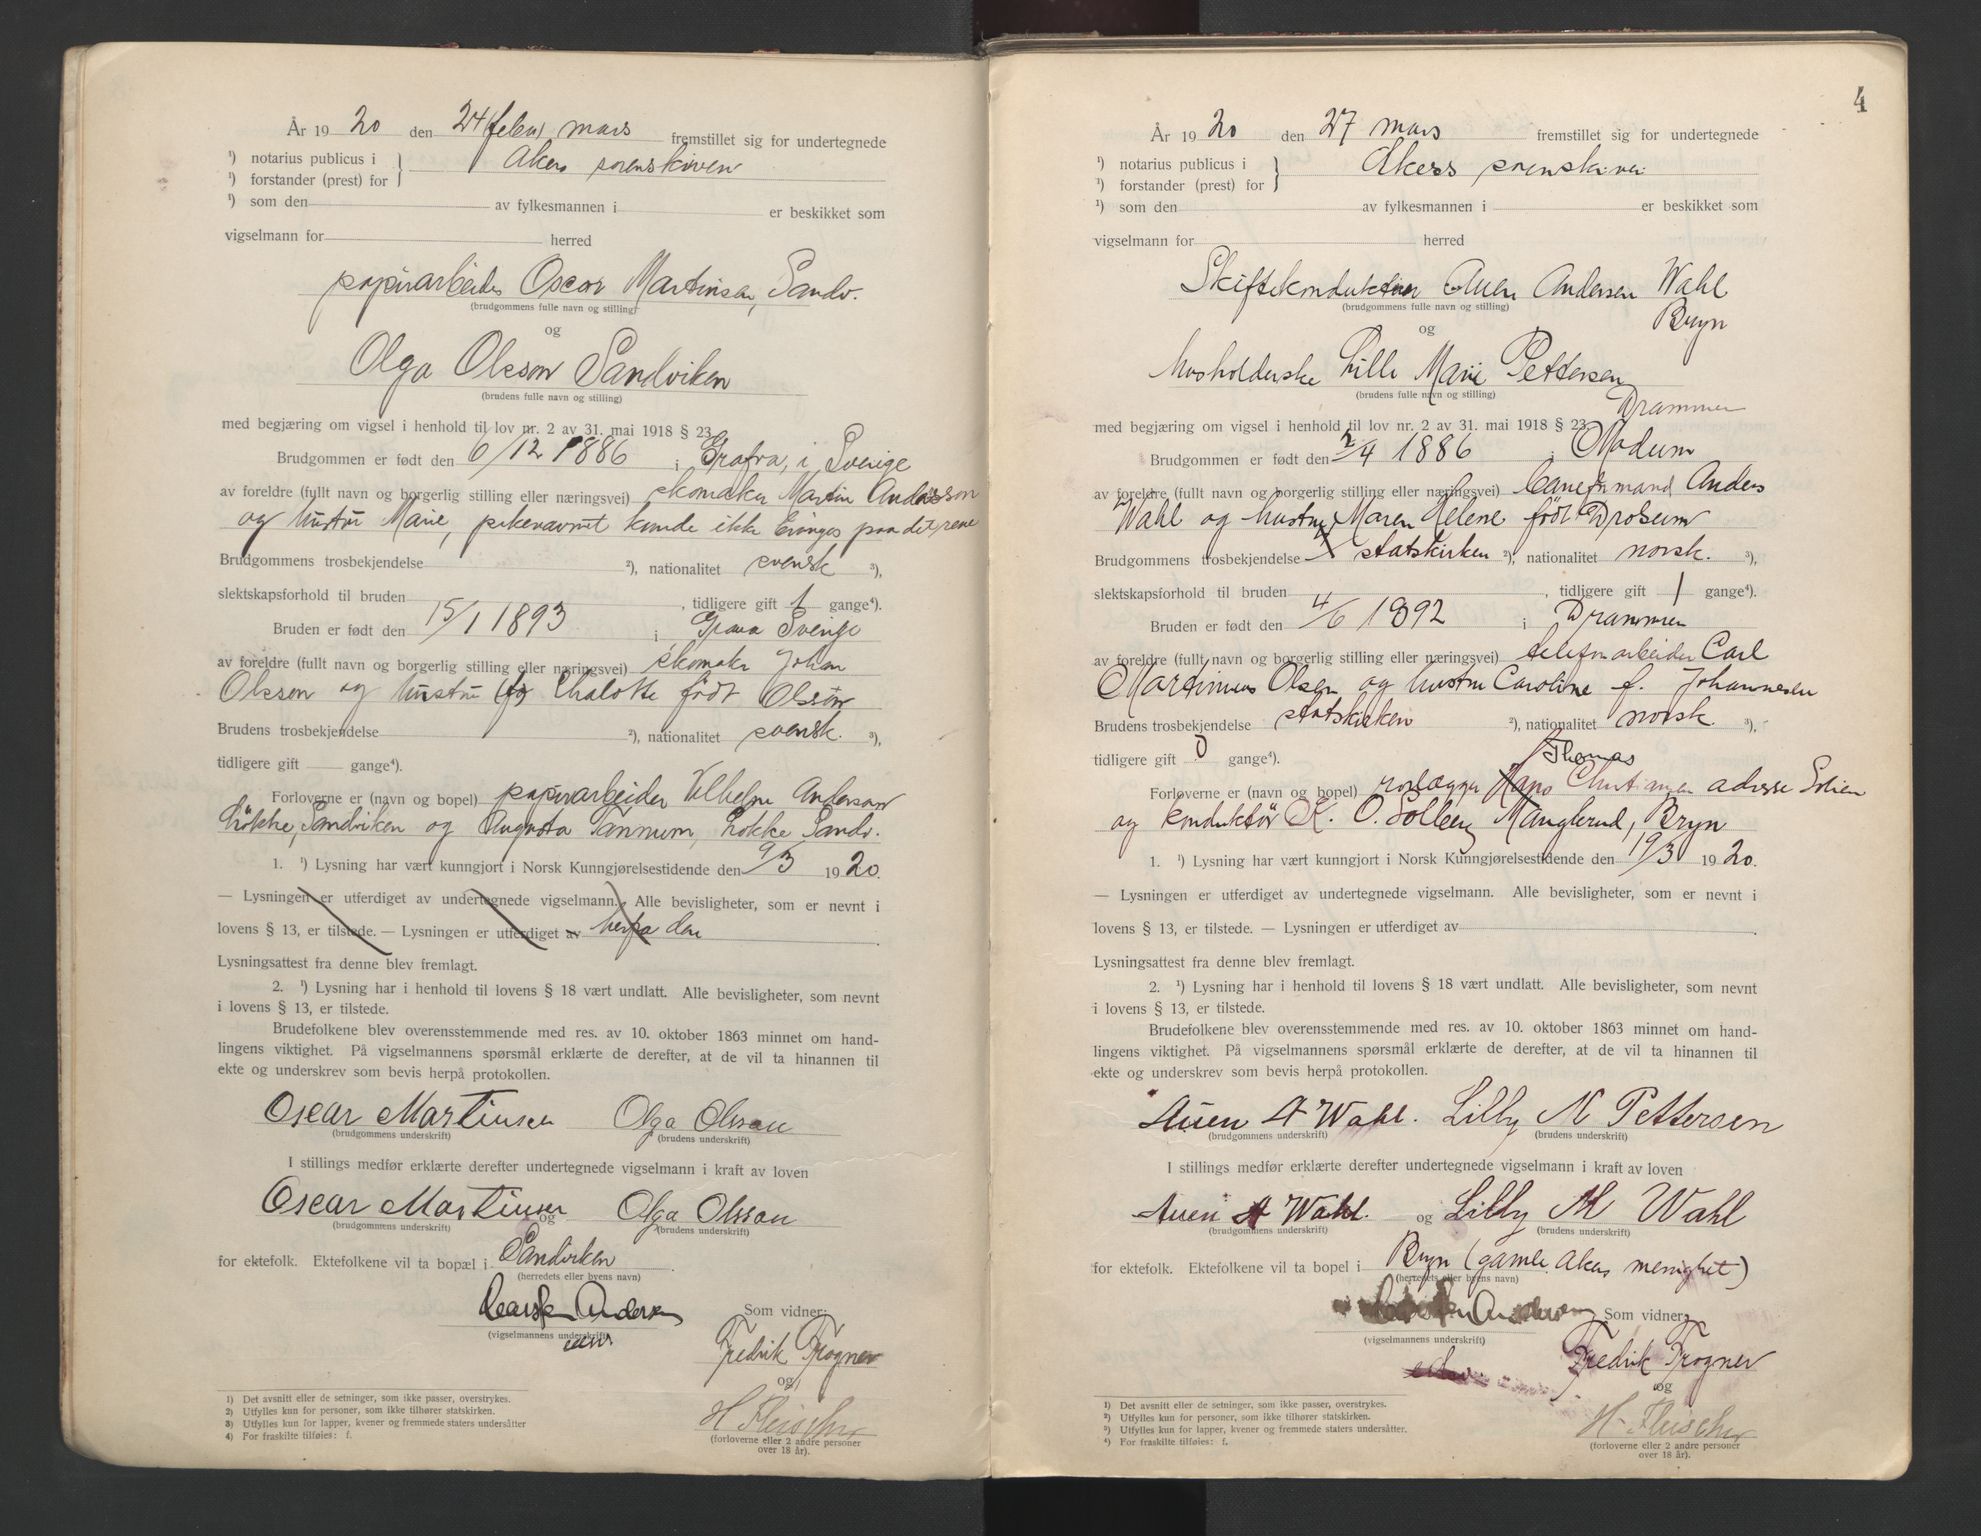 År 1920 den 24 (febru) mars fremstillet sig for undertegnede
¹) notarius publicus i } Akers sorenskriver
¹) forstander (prest) for
¹) som den av fylkesmannen i er beskikket som
vigselmann for herred
papirarbeider Oscar Martinsen, Sandv.
(brudgommens fulle navn og stilling)
og
Olga Olsson Sandviken
(brudens fulle navn og stilling)
med begjæring om vigsel i henhold til lov nr. 2 av 31. mai 1918 § 23.
Brudgommen er født den 6/12 1886 i Grafva, i Sverige
av foreldre (fullt navn og borgerlig stilling eller næringsvei) skomaker Martin Andersson
og hustru Marie, pikenavnet kunde ikke bringes paa det rene
Brudgommens trosbekjendelse ²), nationalitet svensk ³),
slektskapsforhold til bruden , tidligere gift 1 gange⁴).
Bruden er født den 15/1 1893 i Grava Sverige
av foreldre (fullt navn og borgerlig stilling eller næringsvei) skomaker Johan
Olsson og hustru Chalotte født Olsson
Brudens trosbekjendelse ²), nationalitet svensk. ³),
tidligere gift gange⁴).
Forloverne er (navn og bopel) papirarbeider Vilhelm Anderson
Løkke, Sandviken og Augusta Tannum, Løkke Sandv.
1. ¹) Lysning har vært kunngjort i Norsk Kunngjørelsestidende den 9/3 1920.
— Lysningen er utferdiget av undertegnede vigselmann. Alle bevisligheter, som er nevnt i
lovens § 13, er tilstede. — Lysningen er utferdiget av herfra den
Lysningsattest fra denne blev fremlagt.
2. ¹) Lysning har i henhold til lovens § 18 vært undlatt. Alle bevisligheter, som nevnt
i lovens § 13, er tilstede.
Brudefolkene blev overensstemmende med res. av 10. oktober 1863 minnet om hand-
lingens viktighet. På vigselmannens spørsmål erklærte de derefter, at de vil ta hinannen til
ekte og underskrev som bevis herpå protokollen.
Oscar Martinsen Olga Olsson
(brudgommens underskrift) (brudens underskrift)
I stillings medfør erklærte derefter undertegnede vigselmann i kraft av loven
Oscar Martinsen og Olga Olsson
(brudgommens underskrift) (brudens underskrift)
for ektefolk. Ektefolkene vil ta bopæl i Sandviken
(herredets eller byens navn)
Carsten Andersen Som vidner:
(vigselmannens underskrift)
Fredrik Trogner
og
H Fleischer
(forloverne eller 2 andre personer
over 18 år).
1) Det avsnitt eller de setninger, som ikke passer, overstrykes.
2) Utfylles kun for personer, som ikke tilhører statskirken.
3) Utfylles kun for lapper, kvener og fremmede staters undersåtter
4) For fraskilte tilføies: f.
4
År 1920 den 27 mars fremstillet sig for undertegnede
¹) notarius publicus i } Akers sorenskriver
¹) forstander (prest) for
¹) som den av fylkesmannen i er beskikket som
vigselmann for herred
Skiftekonduktør Auen Andersen Wahl
(brudgommens fulle navn og stilling) Bryn
og
husholderske Lilli Marie Pettersen
(brudens fulle navn og stilling) Drammen
med begjæring om vigsel i henhold til lov nr. 2 av 31. mai 1918 § 23.
Brudgommen er født den 2/4 1886 i Modum
av foreldre (fullt navn og borgerlig stilling eller næringsvei) Anders
Wahl og hustru Maren Helene født Drolsum
Brudgommens trosbekjendelse statskirken ²), nationalitet norsk. ³),
slektskapsforhold til bruden , tidligere gift 1 gange⁴).
Bruden er født den 4/6 1892 i Drammen
av foreldre (fullt navn og borgerlig stilling eller næringsvei) telefonarbeider Carl
Martinius Olsen og hustru Caroline f. Johannesen
Brudens trosbekjendelse statskirken ²), nationalitet norsk. ³),
tidligere gift 0 gange⁴). Thomas
Forloverne er (navn og bopel) rørlægger Christiansen adresse
og konduktør K. O. Solberg Manglerud, Bryn
1. ¹) Lysning har vært kunngjort i Norsk Kunngjørelsestidende den 19/3 1920.
— Lysningen er utferdiget av undertegnede vigselmann. Alle bevisligheter, som er nevnt i
lovens § 13, er tilstede. — Lysningen er utferdiget av
Lysningsattest fra denne blev fremlagt.
2. ¹) Lysning har i henhold til lovens § 18 vært undlatt. Alle bevisligheter, som nevnt
i lovens § 13, er tilstede.
Brudefolkene blev overensstemmende med res. av 10. oktober 1863 minnet om hand-
lingens viktighet. På vigselmannens spørsmål erklærte de derefter, at de vil ta hinannen til
ekte og underskrev som bevis herpå protokollen.
Auen A Wahl. Lilly M Pettersen
(brudgommens underskrift) (brudens underskrift)
I stillings medfør erklærte derefter undertegnede vigselmann i kraft av loven
Auen A Wahl. og Lilly M Wahl
(brudgommens underskrift) (brudens underskrift)
for ektefolk. Ektefolkene vil ta bopel i Bryn (gamle Akers menighet)
(herredets eller byens navn)
Carsten Andersen Som vidner:
(vigselmannens underskrift)
Fredrik Trogner
og
H. Fleischer
(forloverne eller 2 andre personer
over 18 år).
¹) Det avsnitt eller de setninger, som ikke passer, overstrykes.
²) Utfylles kun for personer, som ikke tilhører statskirken.
³) Utfylles kun for lapper, kvener og fremmede staters undersåtter.
⁴) For fraskilte tilføies: f.